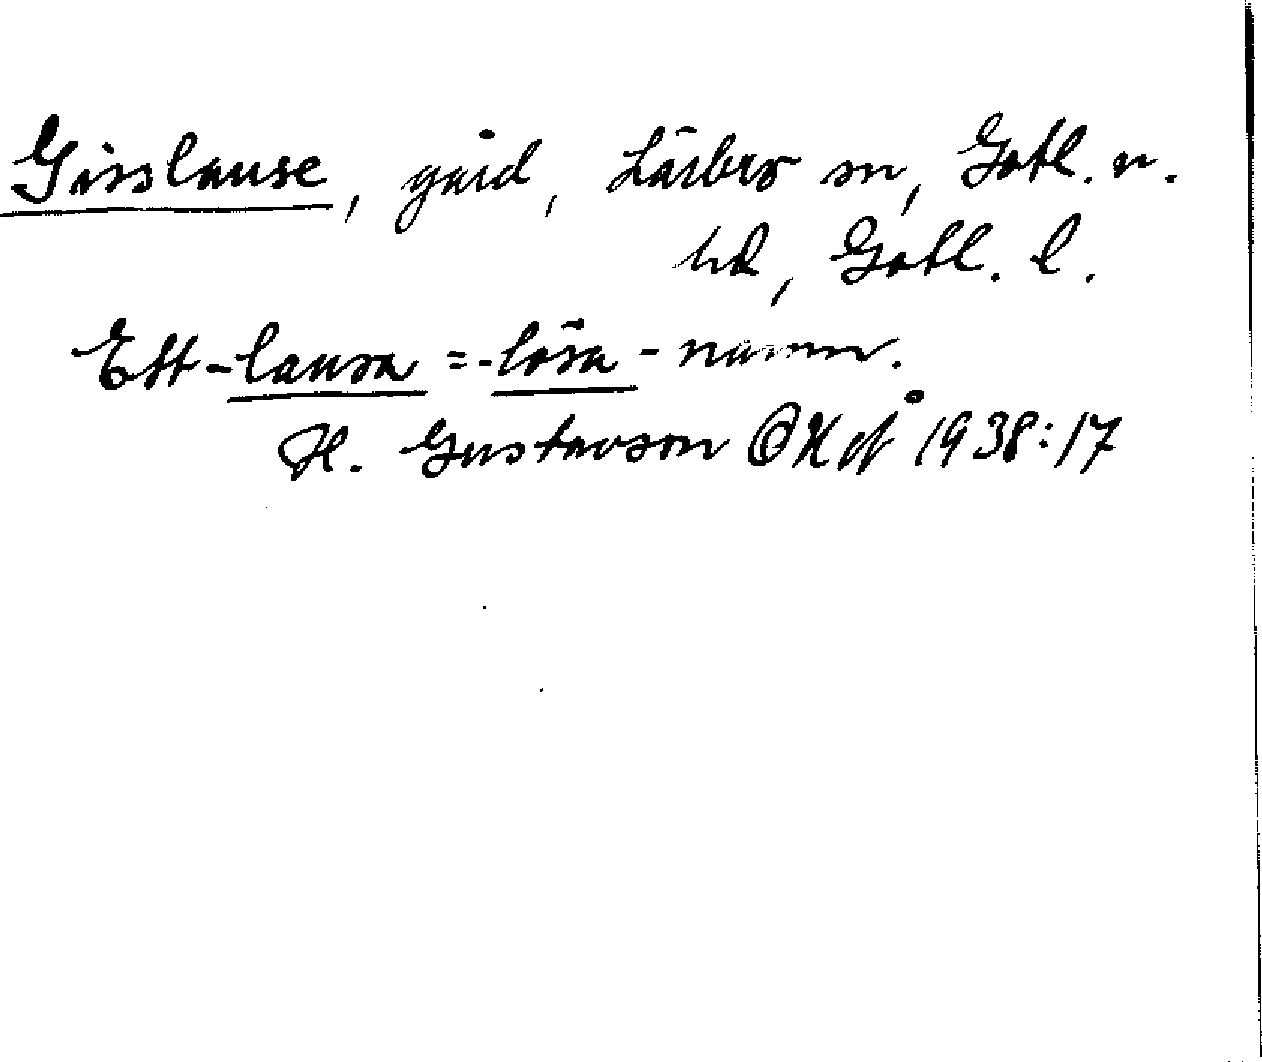 Gisslause, gård, Lärbro sn, Gotl. n.
hd, Gotl. l.
Ett -lausa = -lösa - namn.
H. Gustavson GHofÅ 1938:17